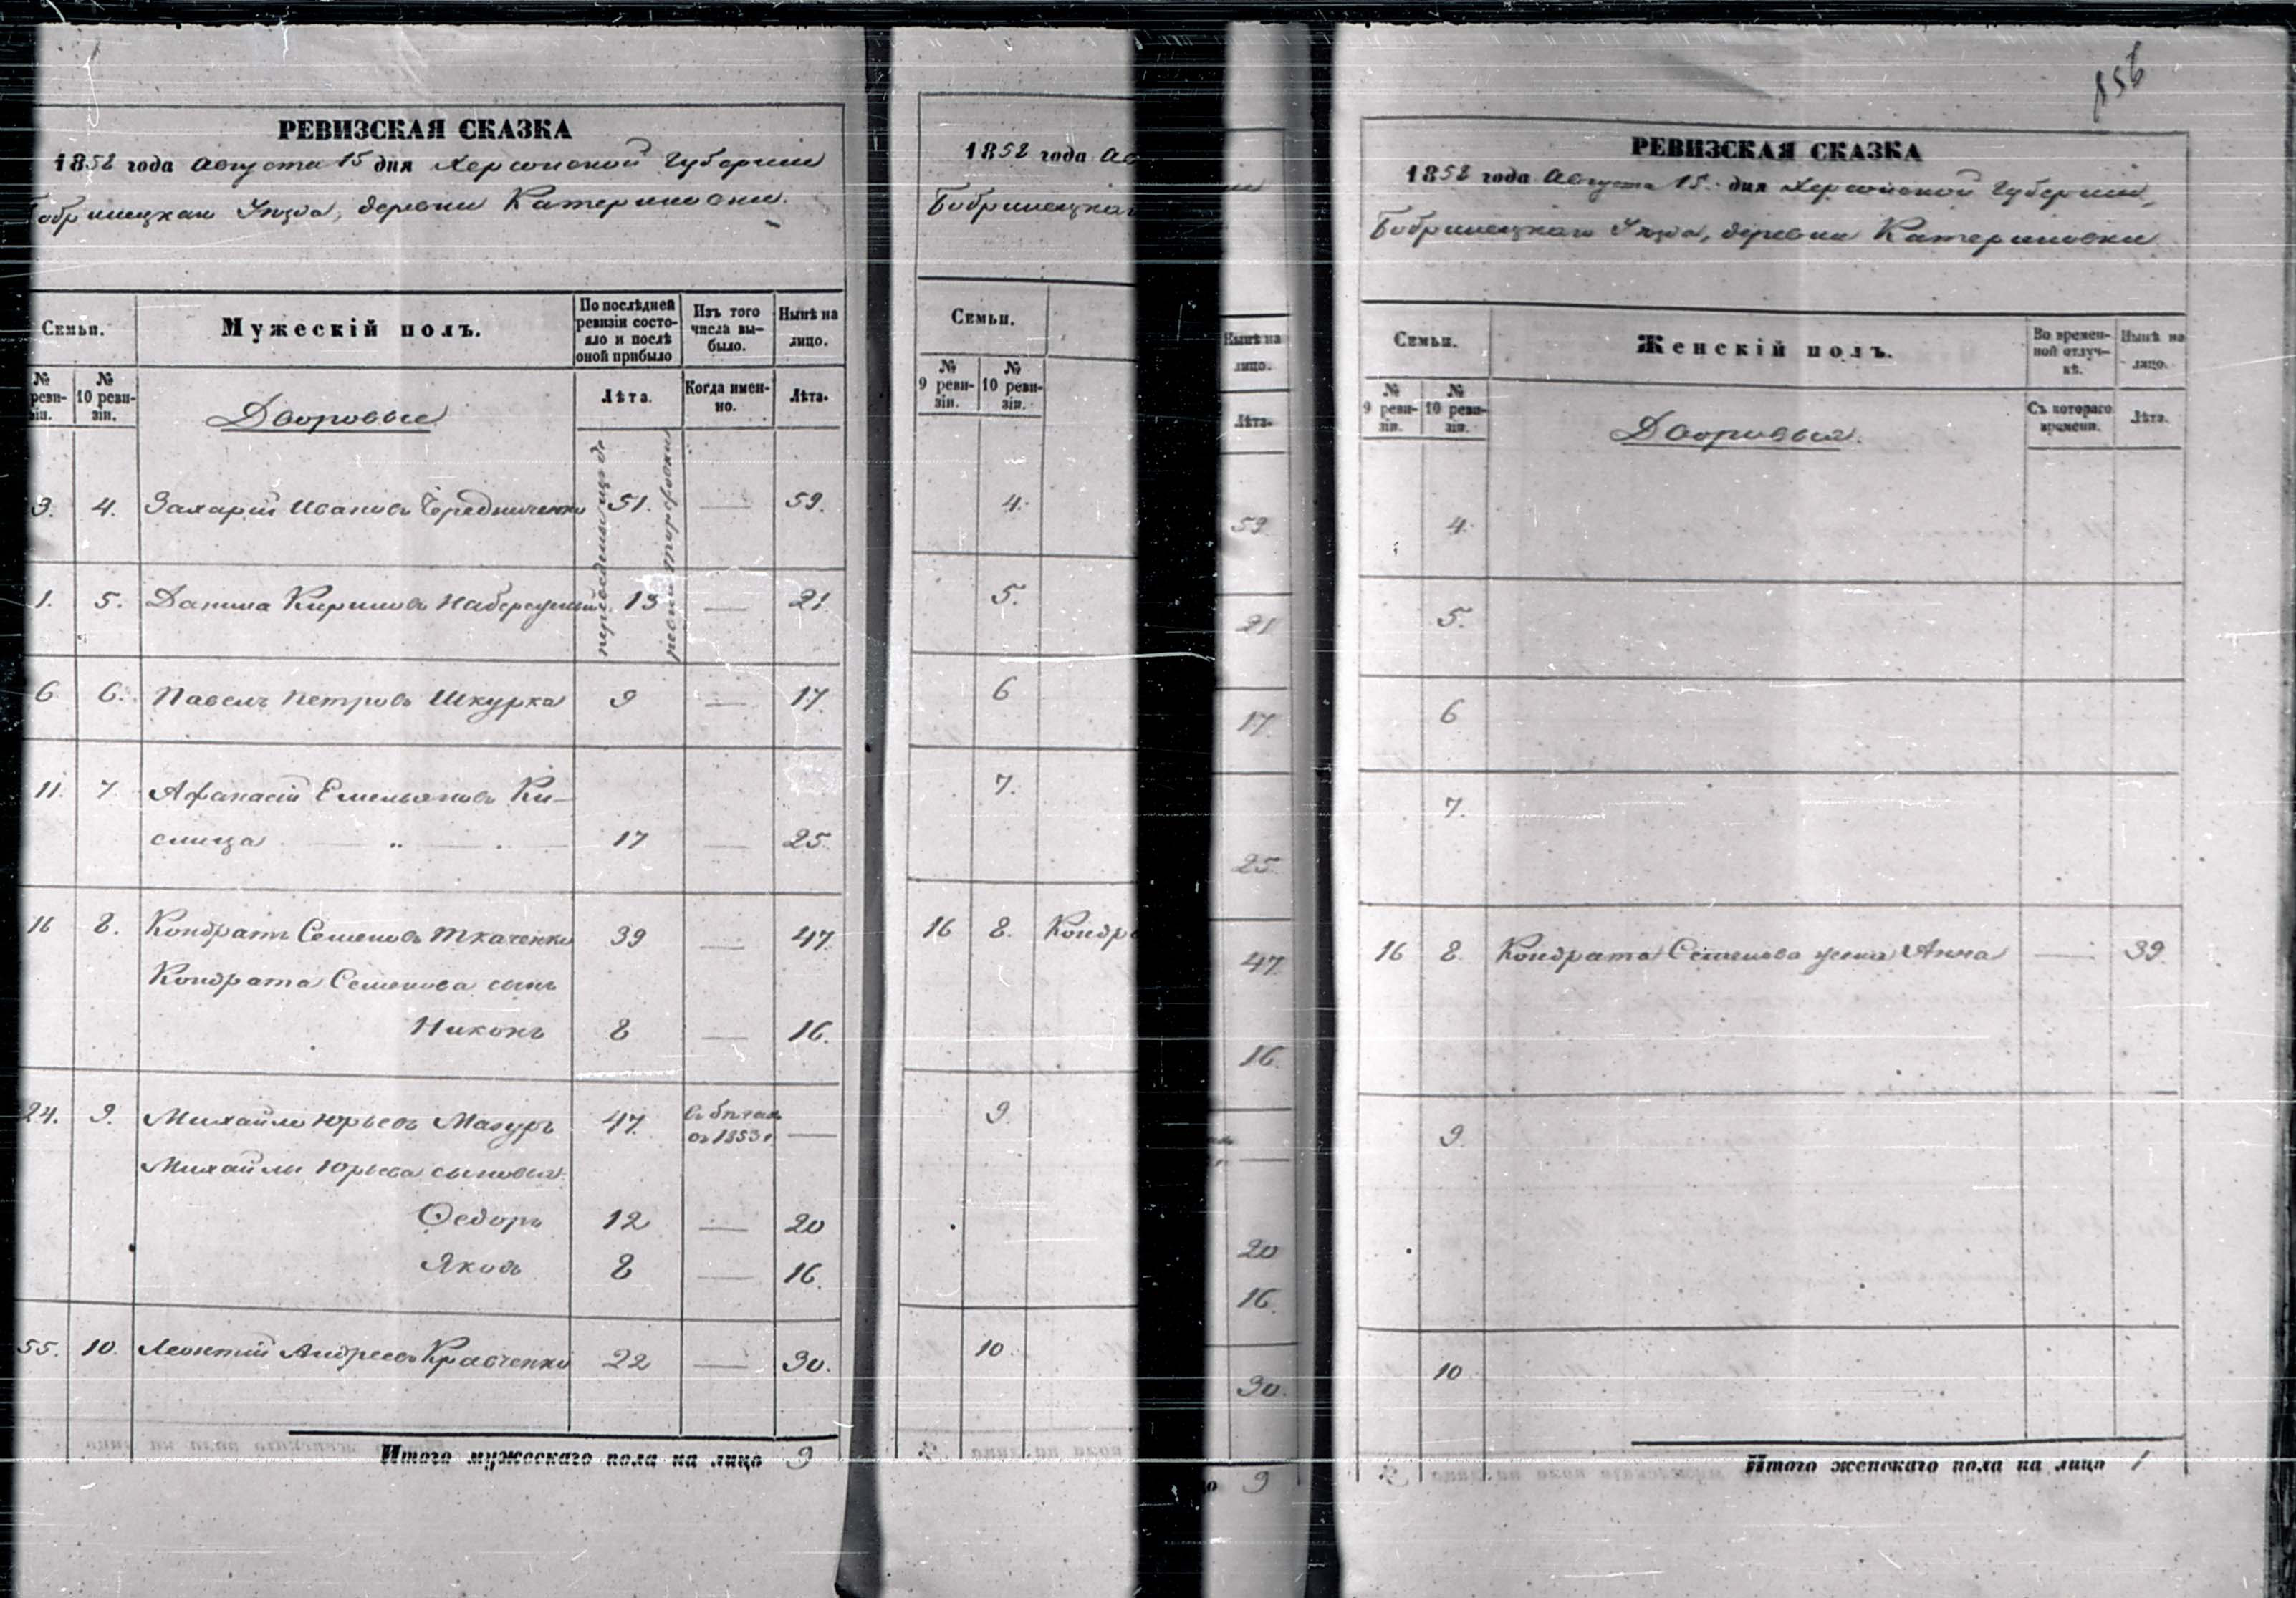 РЕВИЗСКАЯ СКАЗКА
1858 года Августа 15 дня Херсонской Губернии
Бобринецкаго Уезда, деревни Катериновки.
Семьи.
Мужескій полъ.
По послѣдней ревизіи состояло и послѣ оной прибыло
Изъ того числа выбыло.
Нынѣ на лицо.
№ ревизіи.
№ 10 ревизіи.
Дворовые
Лѣта.
Когда именно.
Лѣта.
3. 4. Захарій Ивановъ Чередниченко 51. — 59.
1. 5. Данила Кириловъ 13 — 21
6 6. Павелъ Петровъ Шкурка 9 — 17.
11. 7 Афанасій Емельяновъ Ки-
слица 17 — 25.
16 8. Кондратъ Семеновъ Ткаченко 39 — 47.
Кондрата Семенова сынъ
Никонъ 8 — 16.
24. 9. Михайло Юрьевъ Мазуръ 47. въ бѣгахъ съ 1853 г. —
Михайлы Юрьева сыновья
Федоръ 12 — 20
Яковъ 8 — 16.
55. 10. Леонтій Андреевъ Кравченко 22 — 30.
Итого мужескаго пола на лицо 9
1858 года Ав
Бобринецкаг
Семьи.
№ 9 ревизіи.
№ 10 ревизіи.
4.
5.
6
7.
16 8. Кондра
9.
10
Нынѣ на лицо.
Лѣта.
59
21
17.
25
47.
16
20
16.
30.
9
856
РЕВИЗСКАЯ СКАЗКА
1858 года Августа 15. дня Херсонской Губерніи,
Бобринецкаго Уезда, деревни Катериновки
Семьи.
Женскій полъ.
Во временной отлучкѣ.
Нынѣ на лицо.
№ 9 ревизіи.
№ 10 ревизіи.
Дворовыя.
Съ котораго времени.
Лѣта.
4.
5.
6
7.
16 8. Кондрата Семенова жена Анна — 39.
9.
10
Итого женскаго пола на лицо 1